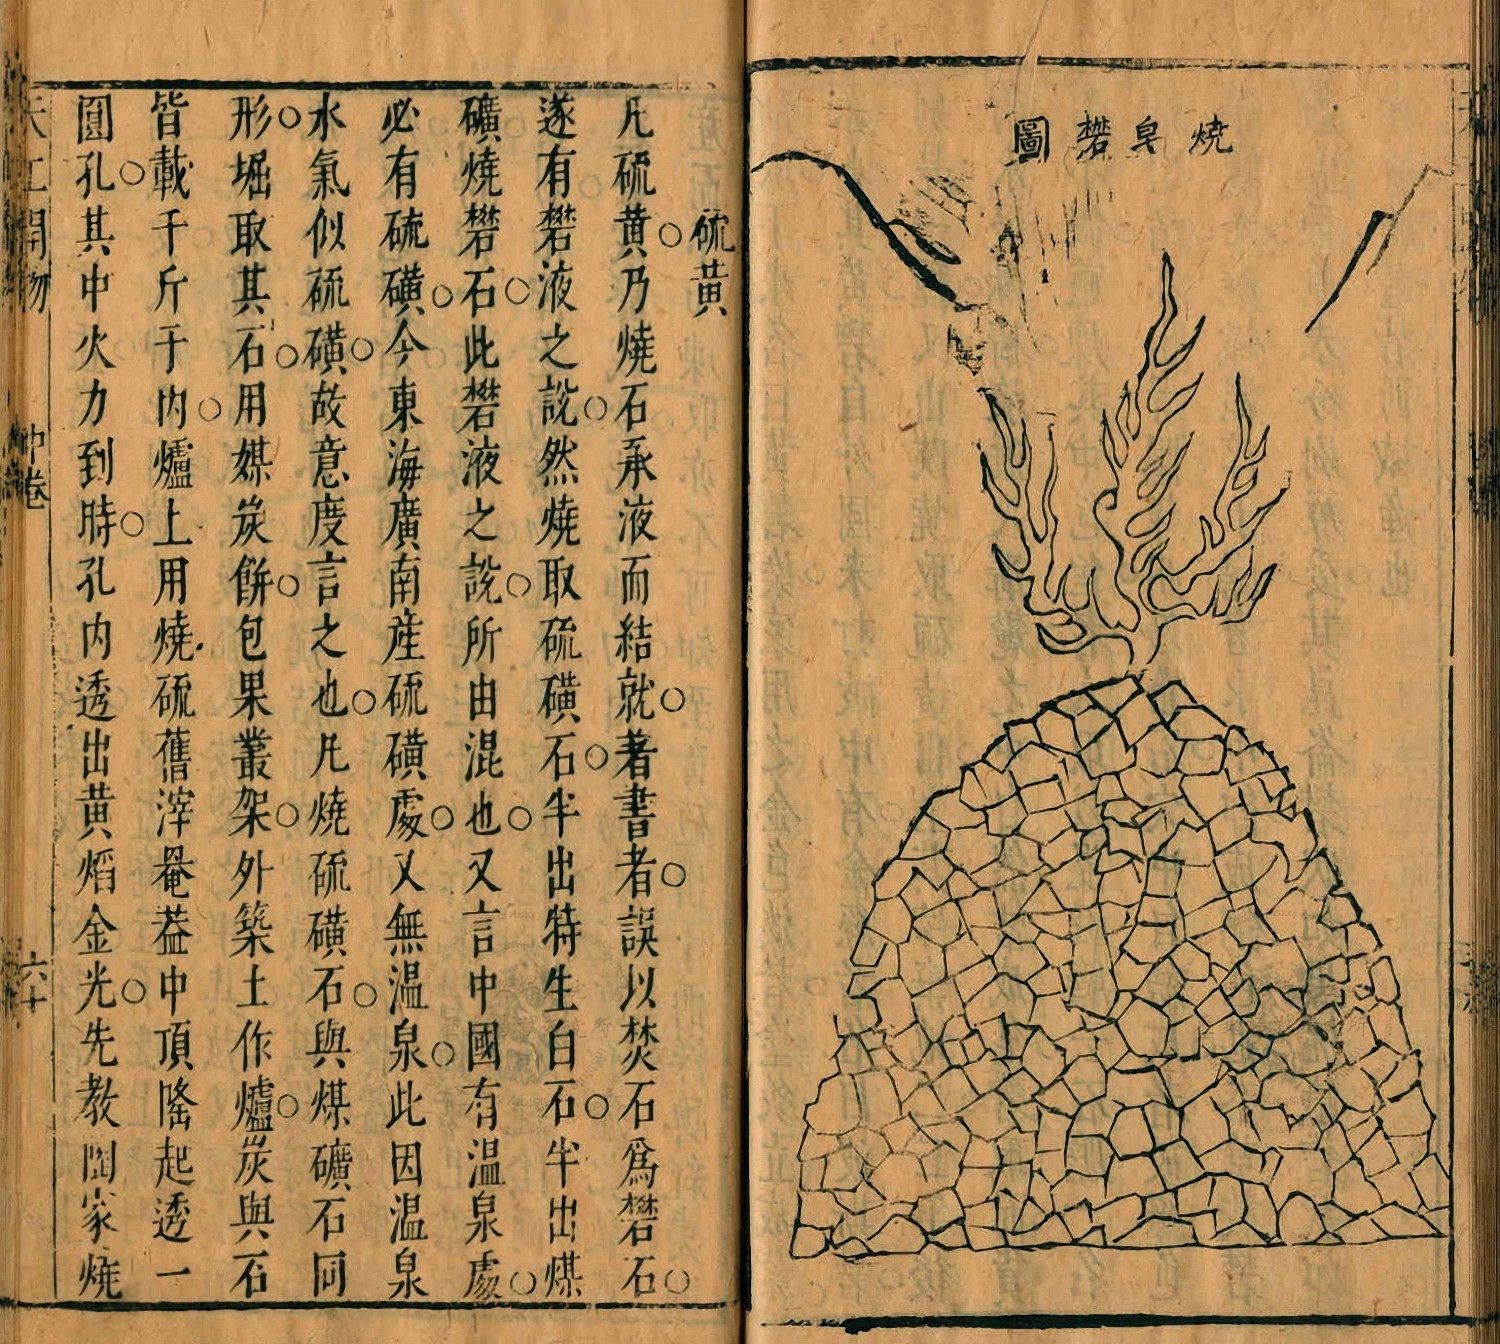 燒皂礬圖
硫黃
凡硫黃乃燒石承液而結就著書者誤以焚石爲礬石
遂有礬液之說然燒取硫磺石半出特生白石半出煤
礦燒礬石此礬液之說所由混也又言中國有溫泉處
必有硫磺今東海廣南產硫磺處又無溫泉此因溫泉
水氣似硫磺故意度言之也凡燒硫磺石與煤礦石同
形堀取其石用煤炭餅包果叢架外築土作爐炭與石
皆載千斤于內爐上用燒硫舊滓罨葢中頂隆起透一
圓孔其中火力到時孔內透出黃焰金光先敎陶家燒
天工開物
中卷
六十